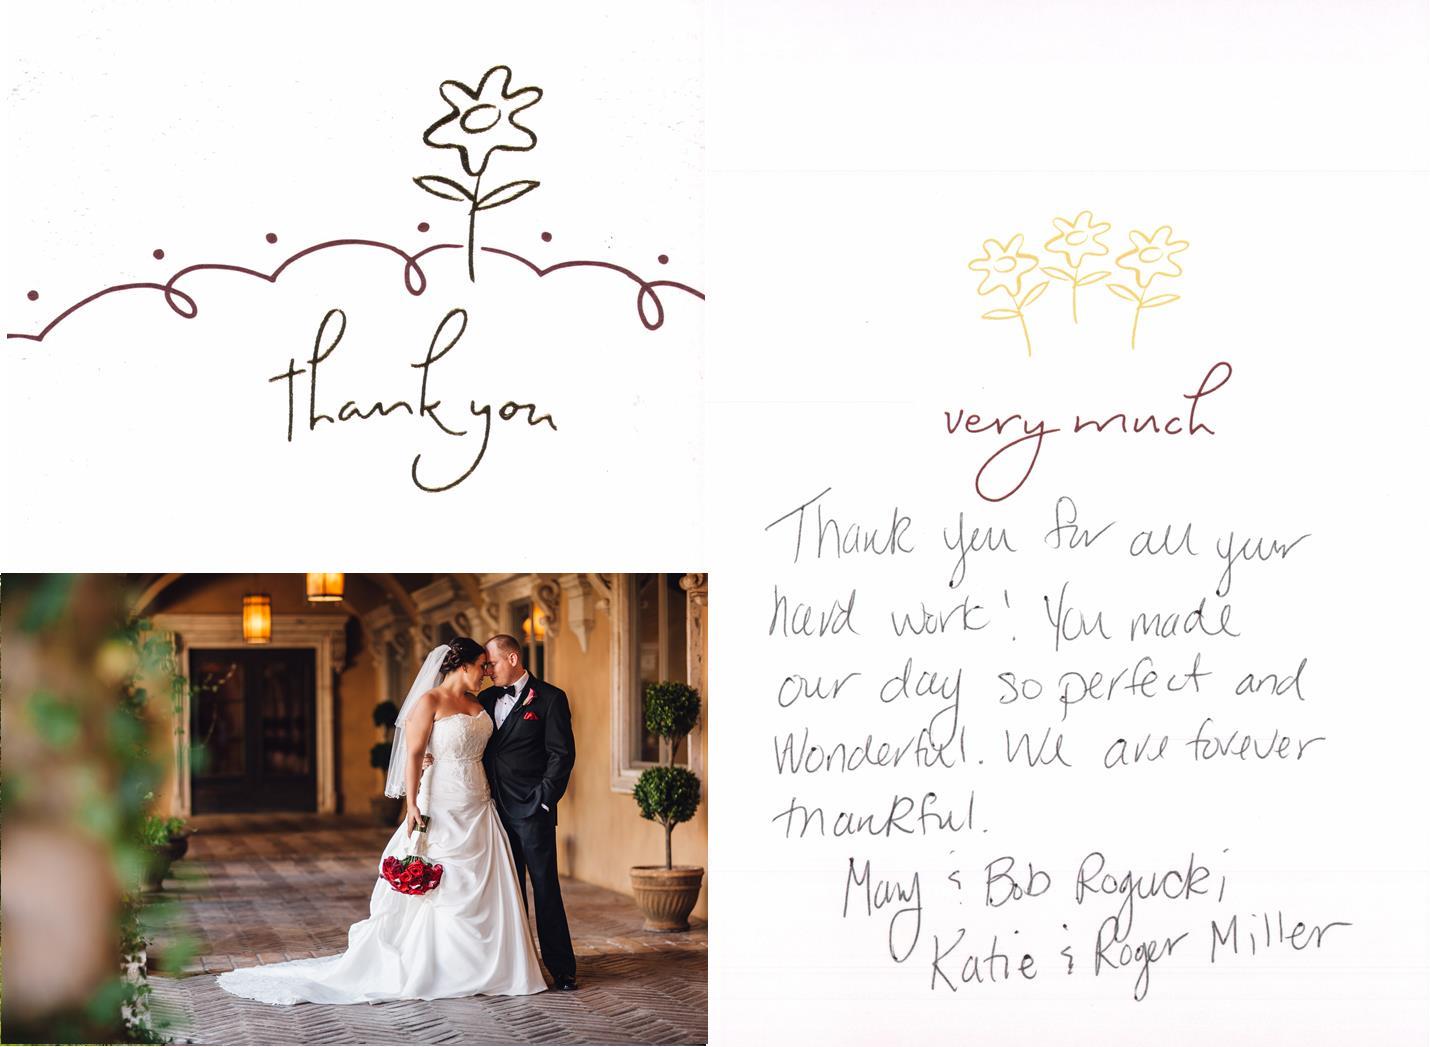 thank you
very much
Thank you for all your
hard work! You made
our day so perfect and
Wonderful. We are forever
thankful.
Mary & Bob Rogucki
Katie & Roger Miller